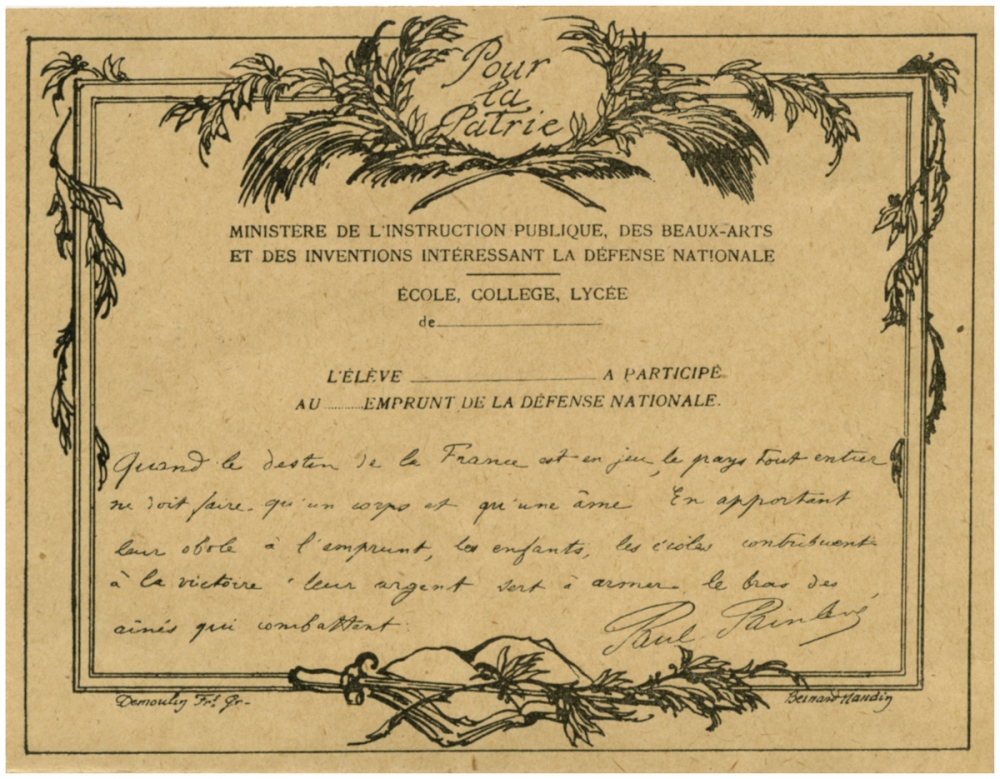 Pour
la
Patrie
MINISTÈRE DE L'INSTRUCTION PUBLIQUE, DES BEAUX-ARTS
ET DES INVENTIONS INTÉRESSANT LA DÉFENSE NATIONALE
ÉCOLE, COLLEGE, LYCÉE
de
L'ÉLÈVE A PARTICIPÉ
AU EMPRUNT DE LA DÉFENSE NATIONALE.
Quand le destin de la France est en jeu, le pays tout entier
ne doit faire qu'un corps et qu'une âme. En apportant
leur obole à l'emprunt, les enfants, les écoles contribuent
à la victoire : leur argent sert à armer le bras des
aînés qui combattent.
Paul Painlevé
Demoulin Frs Gr.
Bernard Naudin